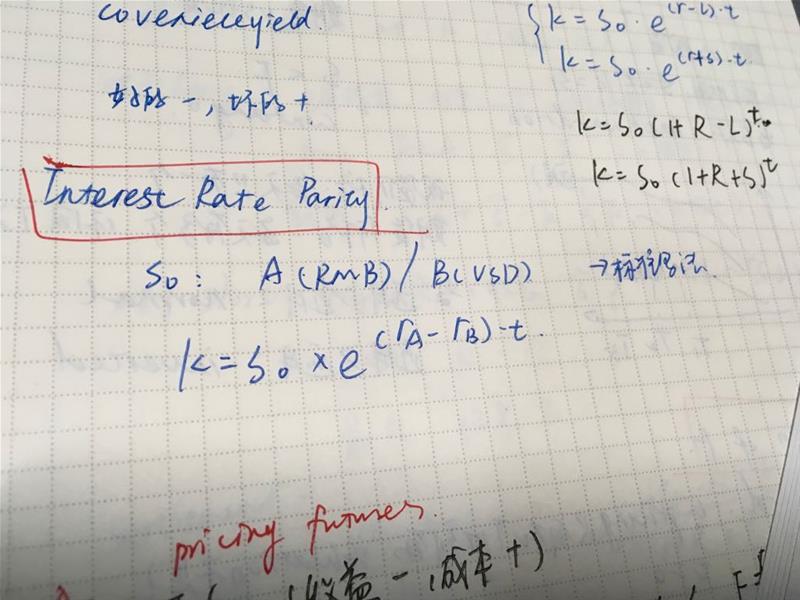 covenienceyield.
好的 -, 坏的 +
k = S0 · e^(r-L)·t
k = S0 · e^(r+s)·t
k = S0 (1+R-L)^t
k = S0 (1+R+S)^t
Interest Rate Parity
S0 : A (RMB) / B (USD) → 标准写法.
k = S0 × e^(rA - rB)·t.
pricing futures.
(收益 -, 成本 +)